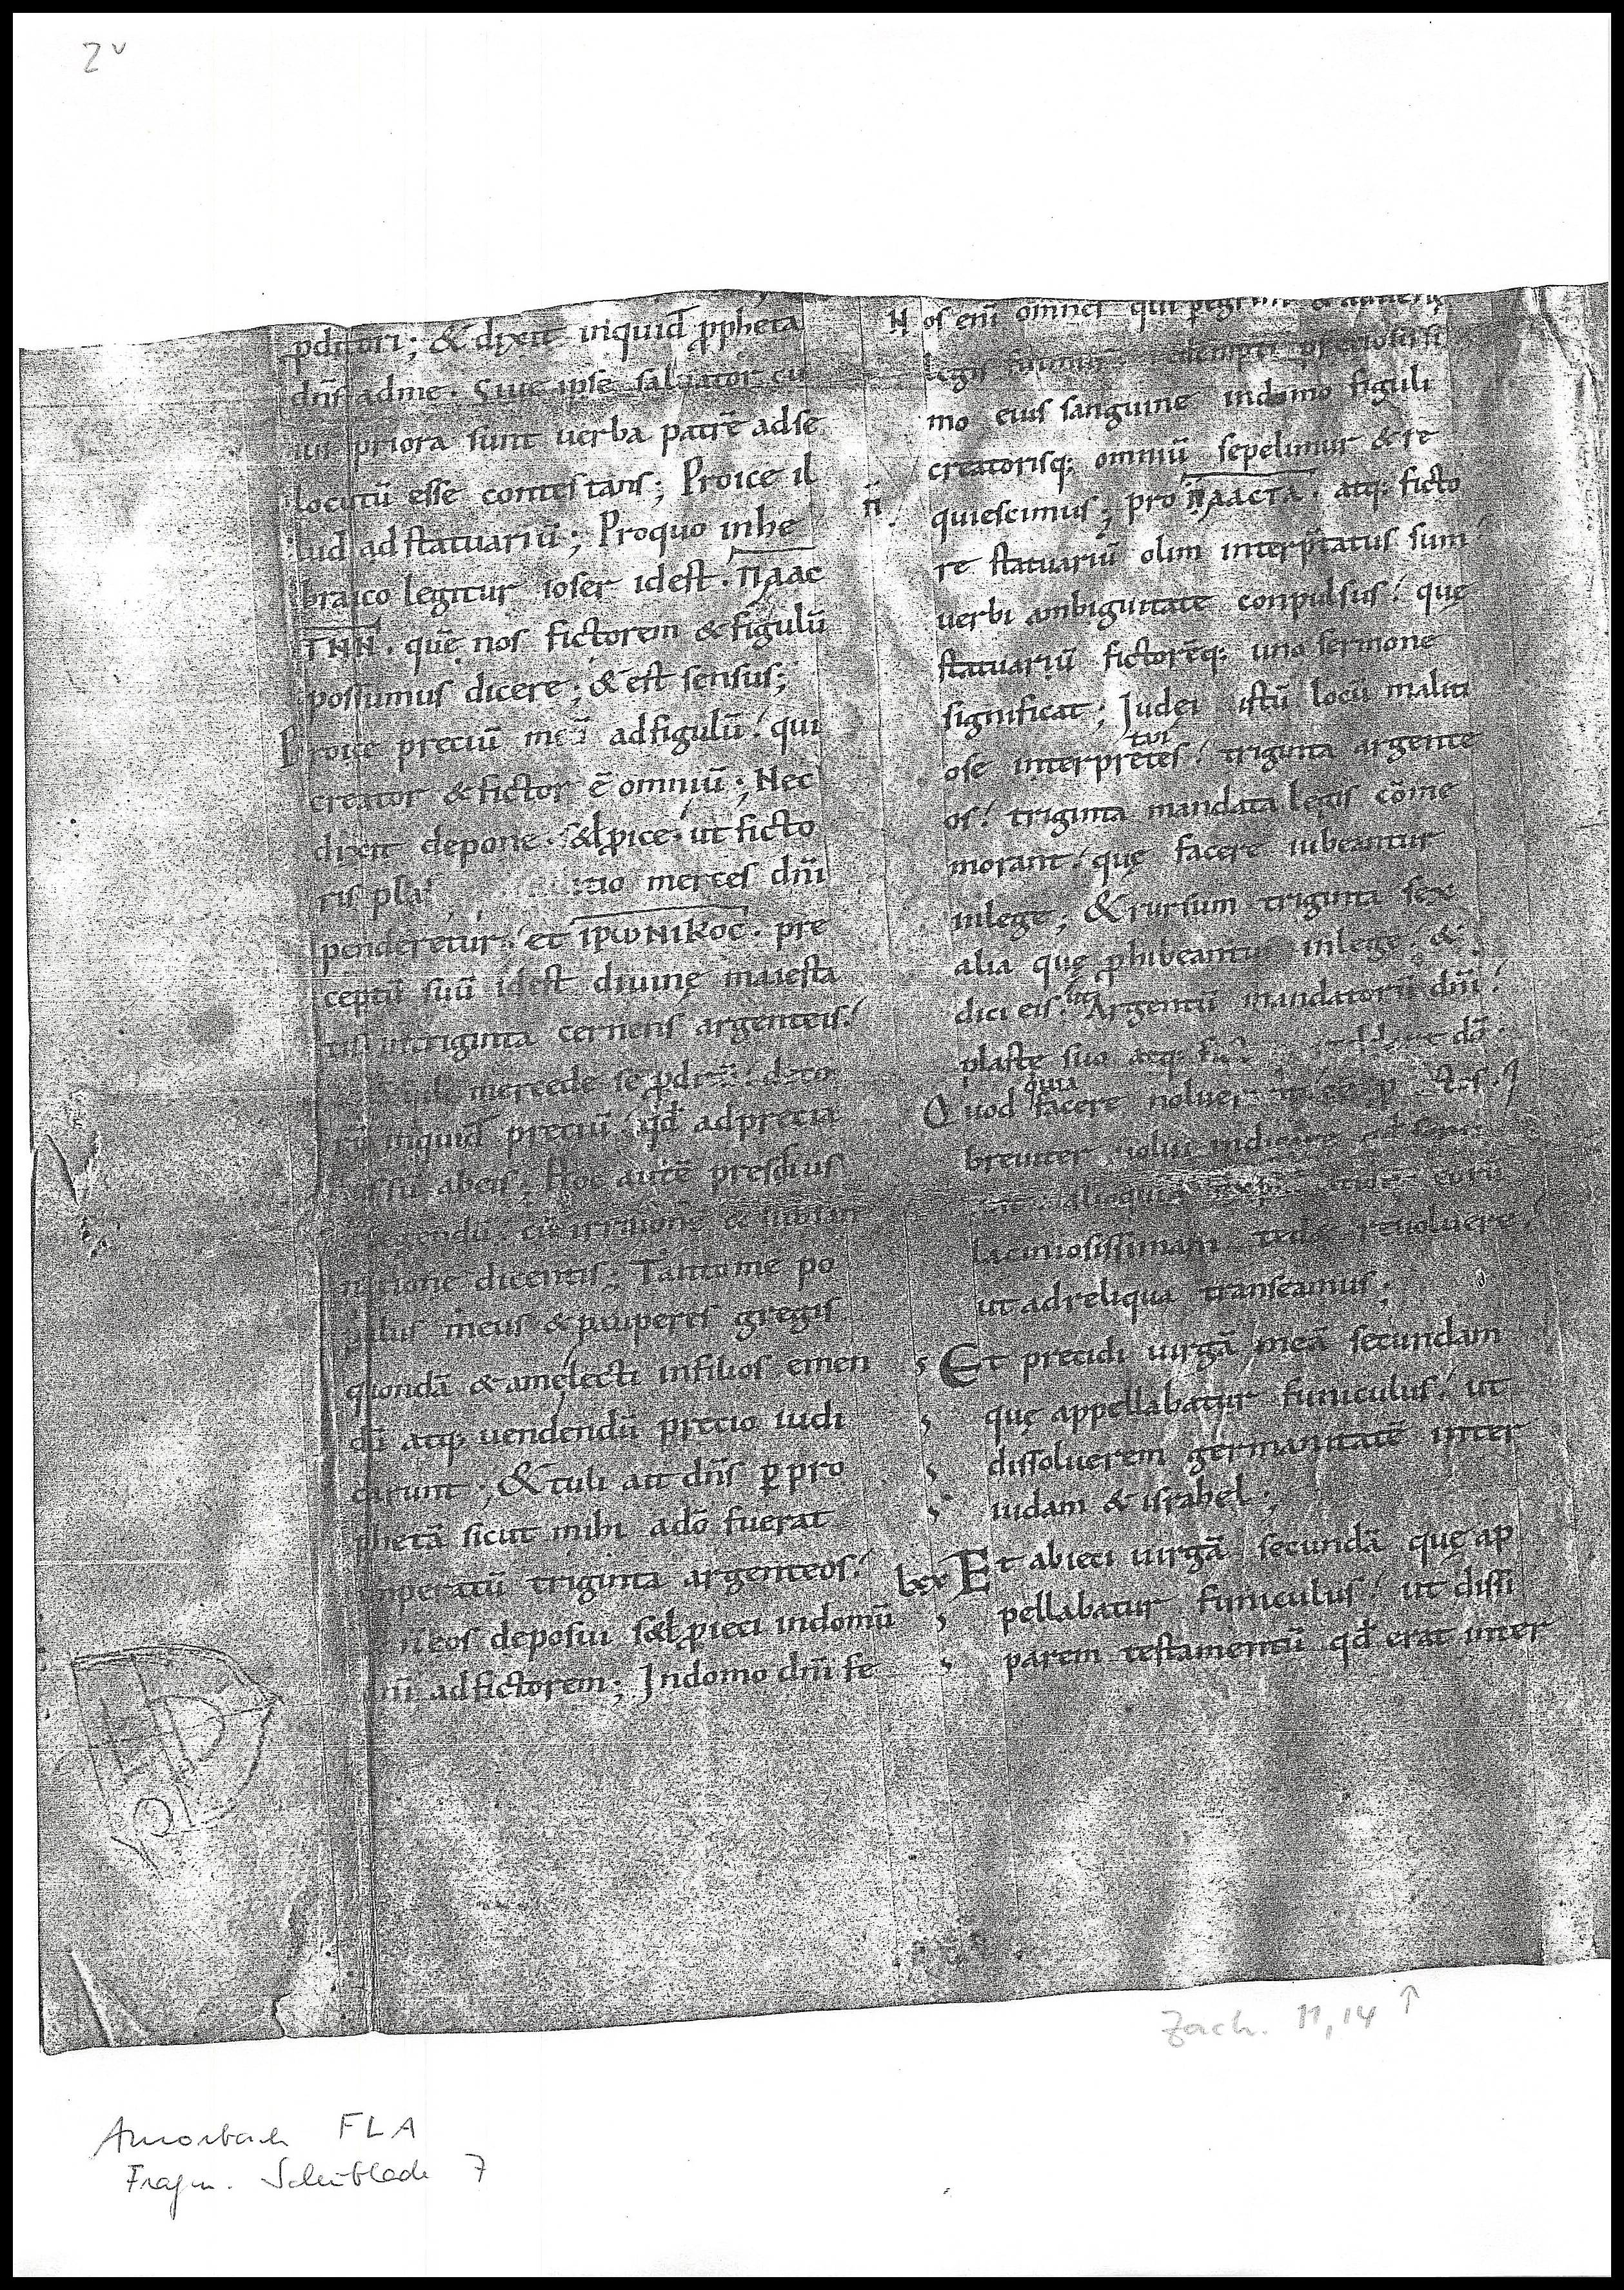 2v
pditori; & dixit inquid ppheta
dn̄s adme. Siue ipse saluator cu
ius priora sunt uerba patrē adse
locutū esse contestans; Proice il
lud ad statuariū; Proquo inhe
braico legitur ioser idest. ΠΛΑC
THN. quē nos fictorem & figulū
possumus dicere; & est sensus;
Proice preciū meū adfigulū! qui
creator & fictor ē omniū; Nec
dixit depone. s&ꝓice! ut ficto
ris merces dn̄i
penderetur! et ιρωνικοc. pre
ceptū suū idest diuinę maiesta
tis intriginta cernens argenteis!
mercede se
inquid preciū! qd̄ adpreciā
abeis; Hoc autē pressius
cū irrisione & subsan
natione dicentis; Tanto me po
pulus meus & pauperes gregis
quondā & amelecti infilios emen
dū atq; uendendū precio iudi
carunt; & tuli ait dn̄s ꝑ pro
phetā sicut mihi adō fuerat
imperatū triginta argenteos!
necos deposui s&ꝓieci indomū
dn̄i adfictorem; Indomo dn̄i fe
Nos enī omnes qui
legis fuimus redempti preciosissi
mo eius sanguine indomo figuli
creatorisq; omniū sepelimur & re
n̄ quiescimus; pro ΠΛΑCTΑ. atq; ficto
re statuariū olim interp̄tatus sum!
uerbi ambiguitate conpulsus! quę
statuariū fictorēq; uno sermone
significat; Judei istū locū maliti
tur
ose interpretes! triginta argente
os! triginta mandata legis cōme
morant! quę facere iubeantur
inlege; & rursum triginta sex
alia quę ꝓhibeantur inlege. &
dici eis. Argentū mandatorū dn̄i!
plaste suo atq;
quia
Quod facere noluer
breuiter uolui indicare
alioquin eorū
laciniosissimam reuoluere!
ut adreliqua transeamus;
Et precidi uirgā meā secundam
quę appellabatur funiculus! ut
dissoluerem germanitatē inter
iudam & israhel;
lxx Et abieci uirgā secundā quę ap
pellabatur funiculus! ut dissi
parem testamentū qd̄ erat inter
Zach. 11,14 ↑
Amorbach FLA
Fragm. Schublade 7